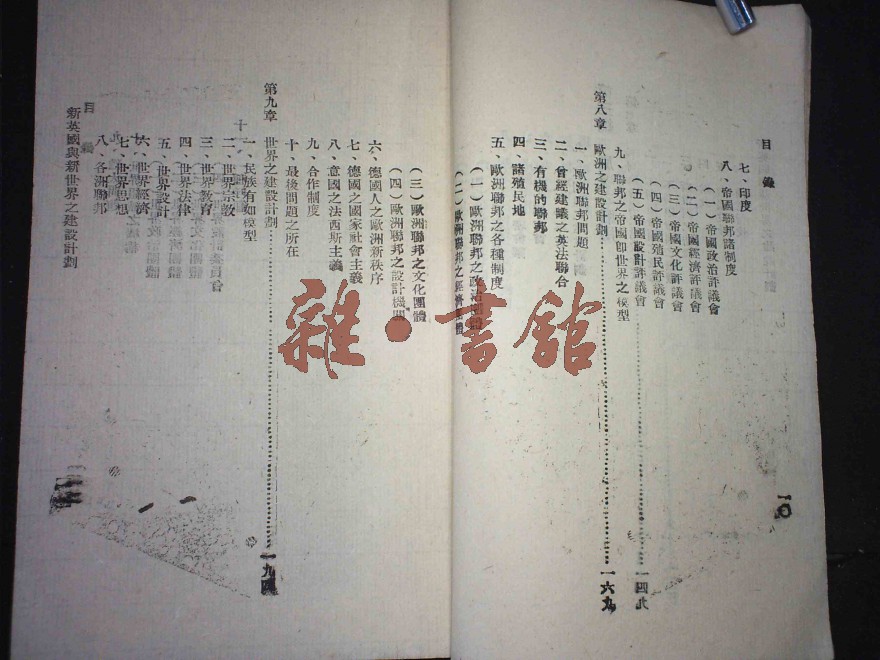 目錄
七、印度
八、帝國聯邦諸制度
（一）帝國政治評議會
（二）帝國經濟評議會
（三）帝國文化評議會
（四）帝國殖民評議會
（五）帝國設計評議會
九、聯邦之帝國卽世界之模型
第八章 歐洲之建設計劃 一六九
一、歐洲聯邦問題
二、曾經建議之英法聯合
三、有機的聯邦
四、諸殖民地
五、歐洲聯邦之各種制度
（一）歐洲聯邦之政治團體
（二）歐洲聯邦之經濟團體
一〇
（三）歐洲聯邦之文化團體
（四）歐洲聯邦之設計機關
六、德國人之歐洲新秩序
七、德國之國家社會主義
八、意國之法西斯主義
九、合作制度
十、最後問題之所在
第九章 世界之建設計劃 一九四
一、民族有如模型
二、世界宗教
三、世界教育
四、世界法律
五、世界設計
六、世界經濟
七、世界思想
八、各洲聯邦
目
新英國與新世界之建設計劃
雜·書館